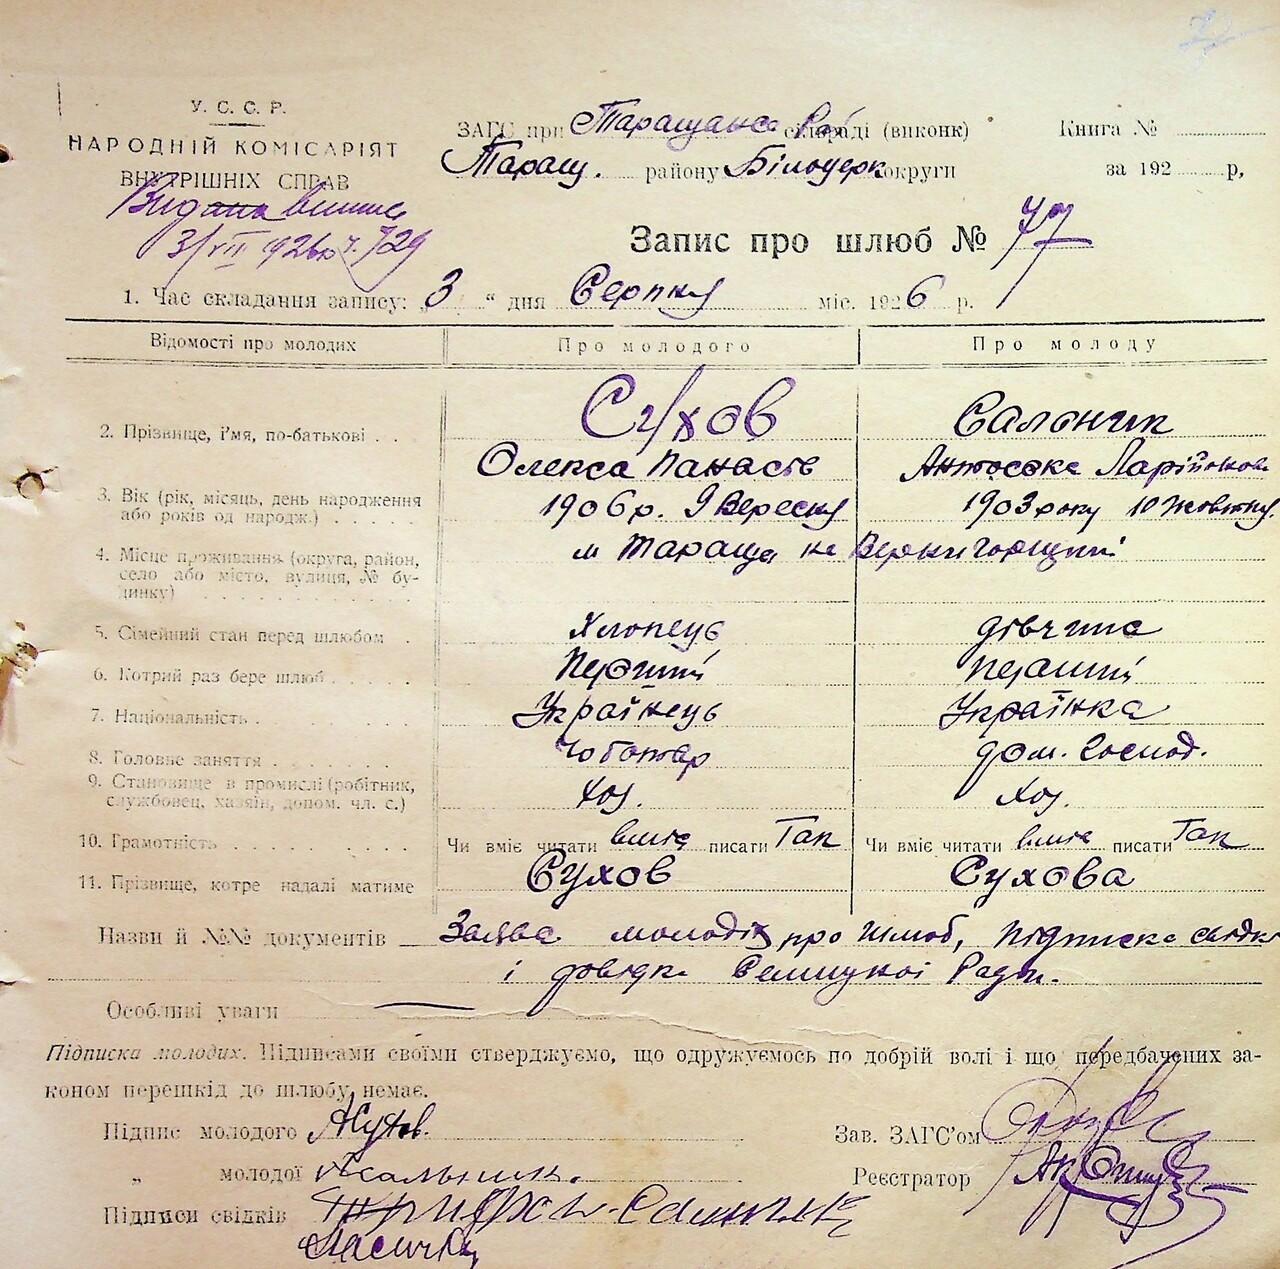 У. С. С. Р.
НАРОДНІЙ КОМІСАРІЯТ
ВНУТРІШНІХ СПРАВ
Видана виписа
3/VIII 926 ч. 729
ЗАГС при Таращанс. сельраді (виконк) Книга №
Таращ. району Білоцерк округи за 192 р,
Запис про шлюб № 77
1. Час складання запису: „3“ дня Серпня міс. 1926 р.
Відомості про молодих Про молодого Про молоду
2. Прізвище, ім'я, по-батькові . . . Сухов
Олекса Панасів Антоська
3. Вік (рік, місяць, день народження або років од народж.) . . . . . 1906 р. 9 Вересня 1903 року 10 Жовтня
4. Місце проживання (округа, район, село або місто, вулиця, № будинку) . . . . . . . . . . . м Тараща
5. Сімейний стан перед шлюбом . Хлопець дівчина
6. Котрий раз бере шлюб . . . . . Перший перший
7. Національність . . . . . . . . Українець Українка
8. Головне заняття . . . . . . . . Чоботар дом. господ.
9. Становище в промислі (робітник, службовец, хазяїн, допом. чл. с.) Хоз. Хоз.
10. Грамотність . . . . . . . . . . Чи вміє читати вміє писати Так Чи вміє читати вміє писати Так
11. Прізвище, котре надалі матиме Сухов Сухова
Назви й №№ документів Заява молодих про шлюб, підписка свідків
і довідка Селищної Ради.
Особливі уваги —
Підписка молодих. Підписами своїми стверджуємо, що одружуємось по добрій волі і що передбачених за-
коном перешкід до шлюбу немає.
Підпис молодого АСухов. Зав. ЗАГС'ом
„ молодої Реєстратор
Підписи свідків